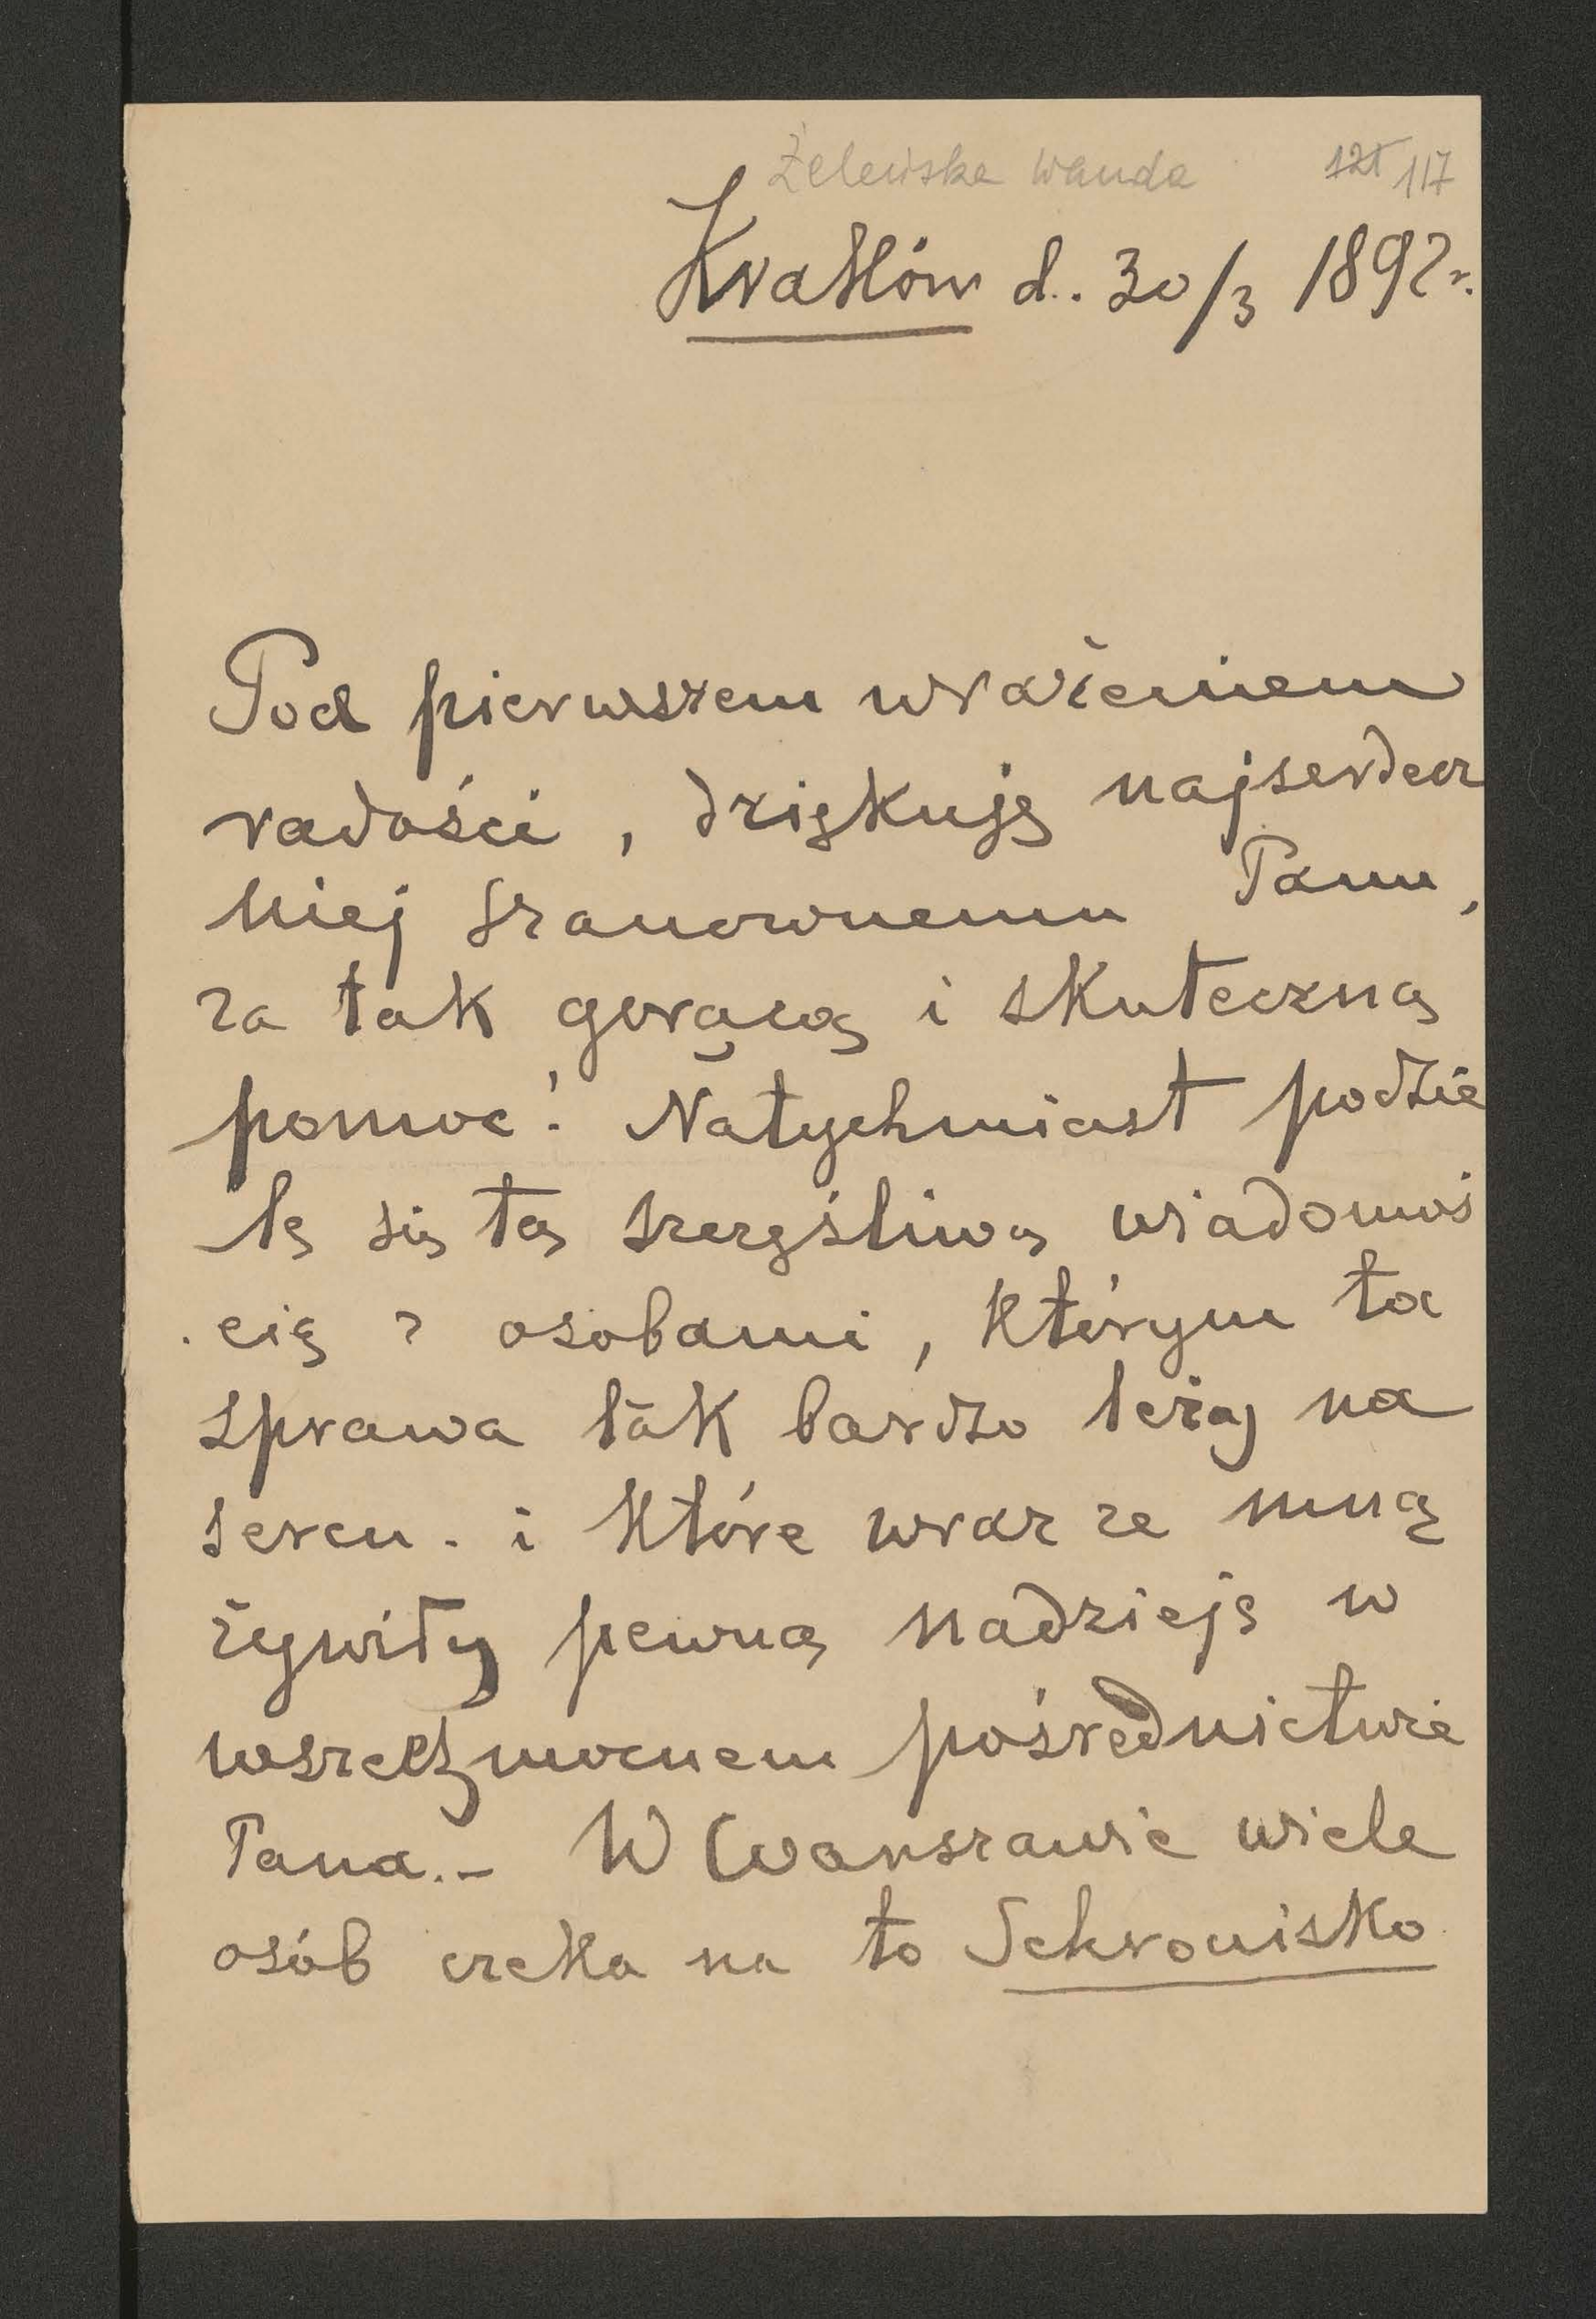 Żeleńska Wanda 121 117
Kraków d. 30/3 1892 r.
Pod pierwszem wrażeniem
radości, dziękuję najserdecz
niej Szanownemu Panu,
za tak gorącą i skuteczną
pomoc! Natychmiast podzie
lę się tą szczęśliwą wiadomoś
cią z osobami, którym ta
sprawa tak bardzo leży na
sercu. i które wraz ze mną
żywiły pewną nadzieję w
wszechmocnem pośrednictwie
Pana. – W Warszawie wiele
osób czeka na to Schronisko